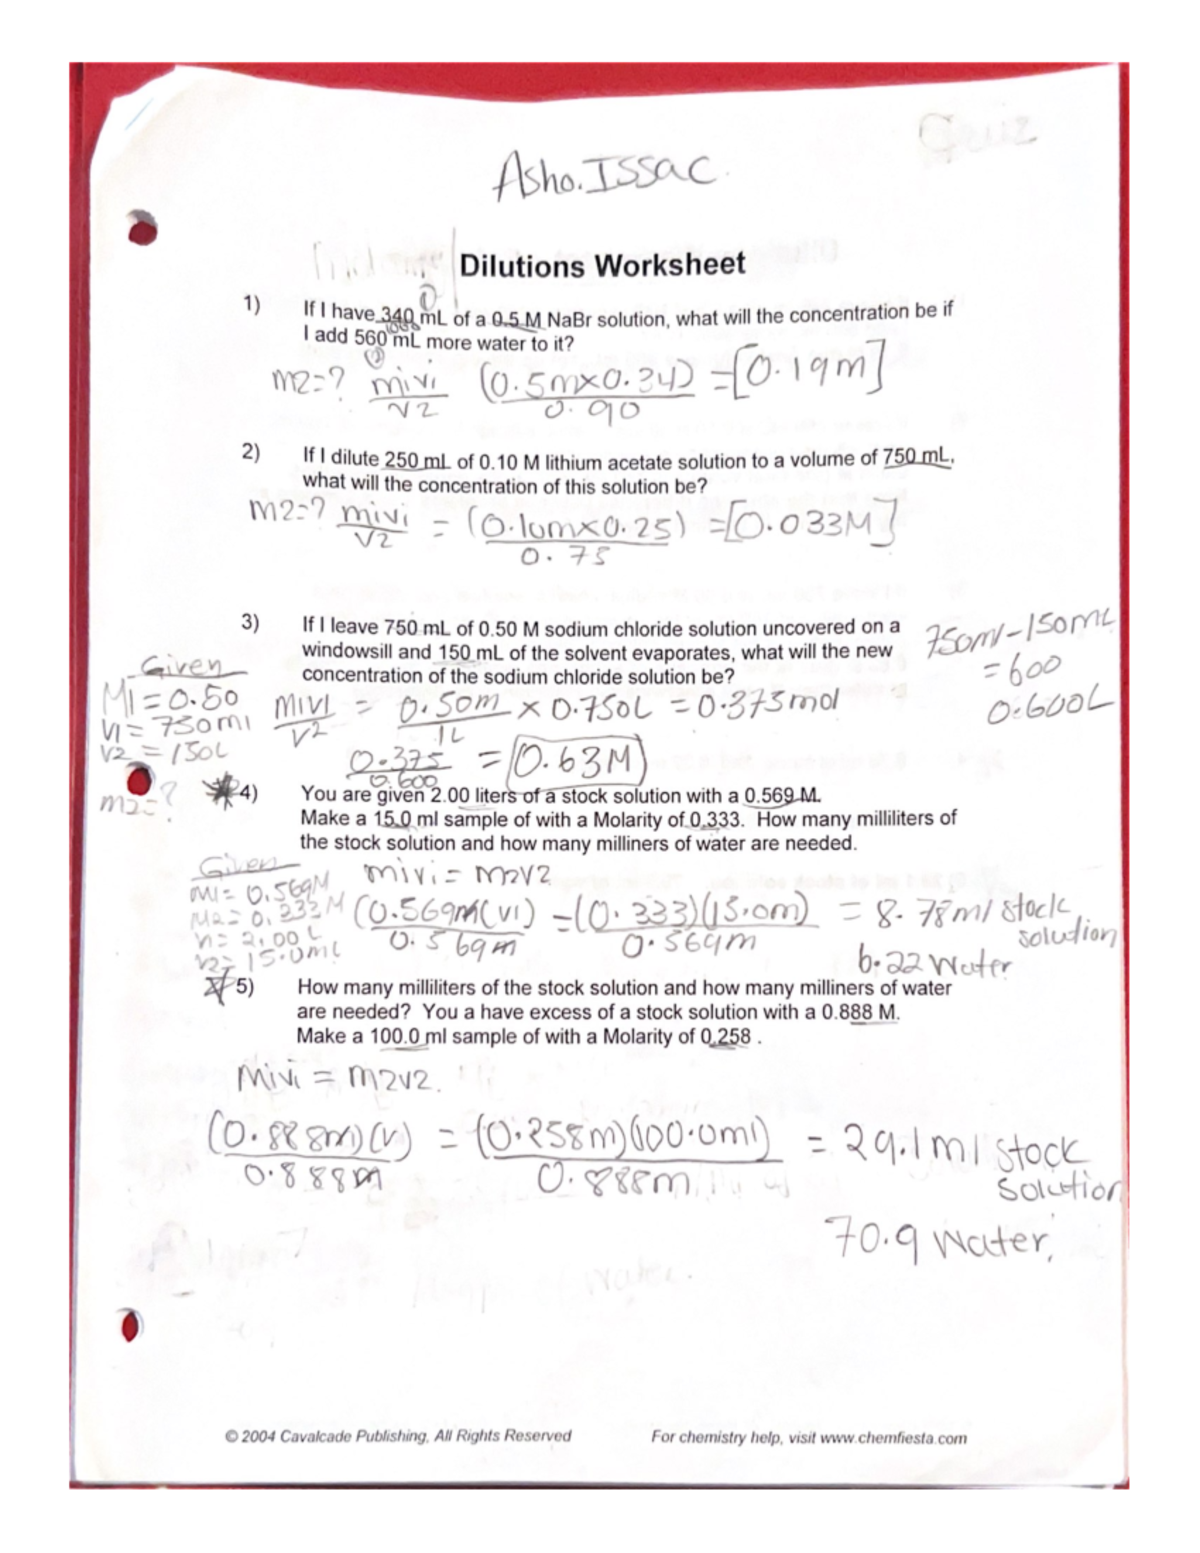 Quiz
Asho.Issac.
Dilutions Worksheet
1) If I have 340 mL of a 0.5 M NaBr solution, what will the concentration be if
I add 560 mL more water to it?
1000
M2=? M1V1 (0.5m×0.34) =[0.19m]
V2 0.90
2) If I dilute 250 mL of 0.10 M lithium acetate solution to a volume of 750 mL,
what will the concentration of this solution be?
M2=? M1V1 = (0.10m×0.25) =[0.033M]
V2 0.75
3) If I leave 750 mL of 0.50 M sodium chloride solution uncovered on a
windowsill and 150 mL of the solvent evaporates, what will the new
concentration of the sodium chloride solution be?
750ml-150mL
=600
0.600L
Given
M1=0.50
V1=750ml
V2=150L
M2=?
M1V1 = 0.50m × 0.750L = 0.375mol
V2 1L
0.375 = 0.63M
0.600
4) You are given 2.00 liters of a stock solution with a 0.569 M.
Make a 15.0 ml sample of with a Molarity of 0.333. How many milliliters of
the stock solution and how many milliners of water are needed.
Given
M1= 0.569M
M2=0.333M
V1= 2.00L
V2= 15.0mL
M1V1= M2V2
(0.569M(V1) =(0.333)(15.0m) = 8.78ml stock
0.569m 0.569m solution
6.22 Water
5) How many milliliters of the stock solution and how many milliners of water
are needed? You a have excess of a stock solution with a 0.888 M.
Make a 100.0 ml sample of with a Molarity of 0.258 .
M1V1 = M2V2.
(0.888m)(V1) = (0.258m)(100.0ml) = 29.1ml stock
0.888m 0.888m solution
70.9 Water.
© 2004 Cavalcade Publishing, All Rights Reserved For chemistry help, visit www.chemfiesta.com